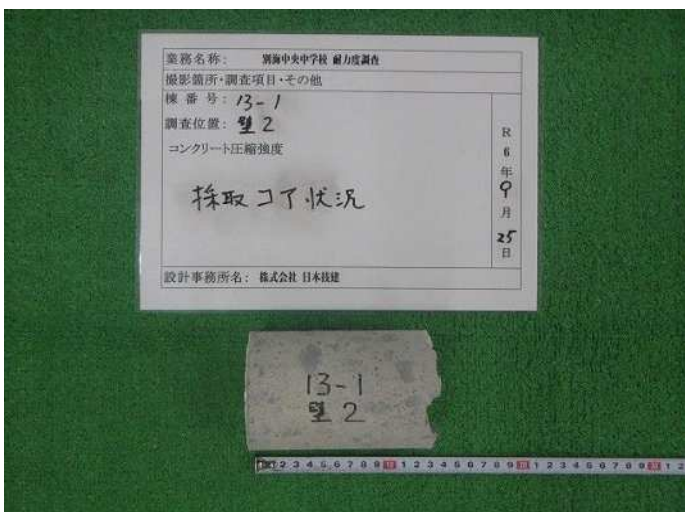 業務名称: 別海中央中学校 耐力度調査
撮影箇所・調査項目・その他
棟番号: 13-1
調査位置: 壁2
コンクリート圧縮強度
採取コア状況
R
6
年
9
月
25
日
設計事務所名: 株式会社 日本技建
13-1
壁2
2 3 4 5 6 7 8 9 10 1 2 3 4 5 6 7 8 9 20 1 2 3 4 5 6 7 8 9 30 1 2